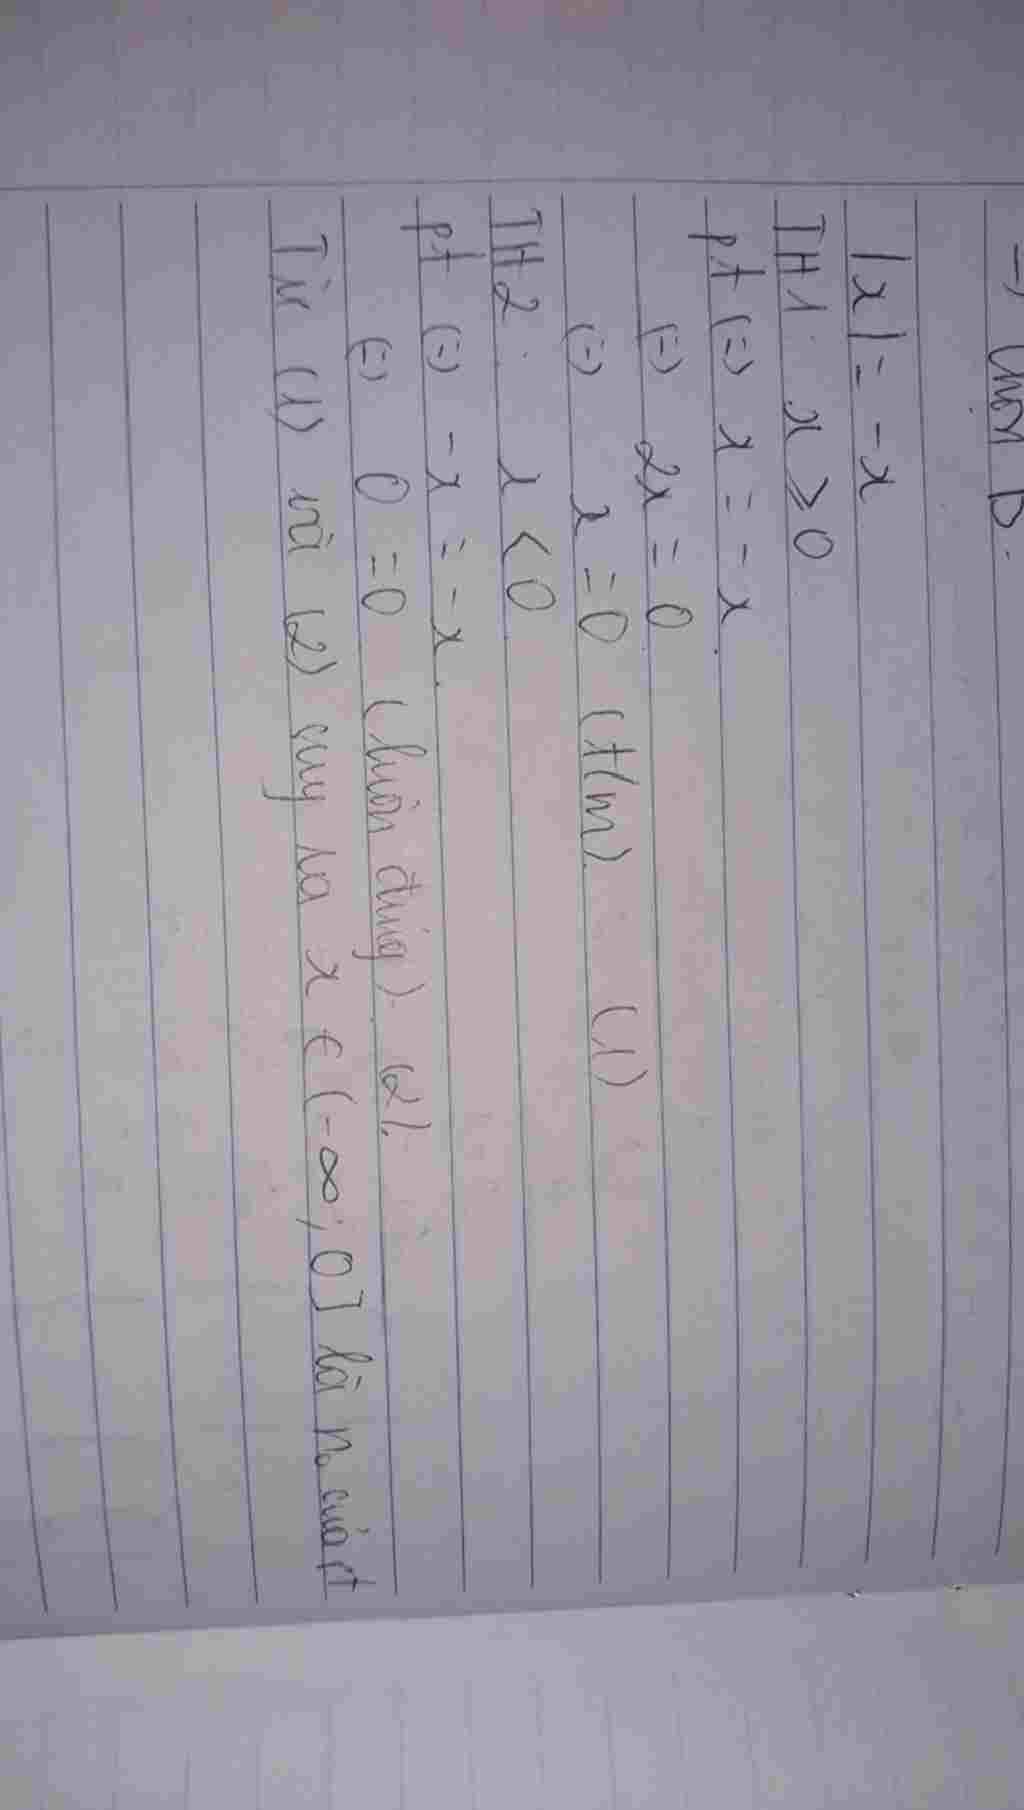 → Chọn D.
|x| = -x
TH1: x ≥ 0
pt (=) x = -x
(=) 2x = 0
(=) x = 0 (t/m) (1)
TH2: x < 0
pt (=) -x = -x.
(=) 0 = 0 (luôn đúng). (2).
Từ (1) và (2) suy ra x ∈ (-∞; 0] là no của pt